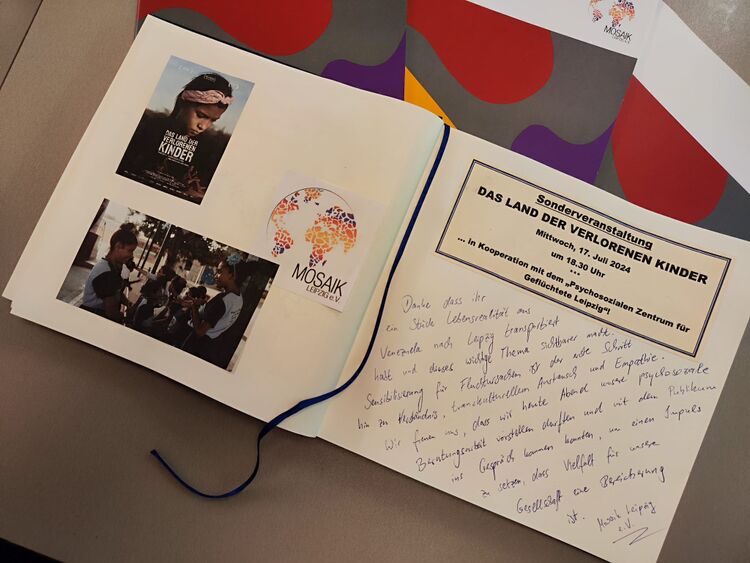 MOSAIK
LEIPZIG e.V.
DAS LAND DER
VERLORENEN
KINDER
MOSAIK
LEIPZIG e.V.
Sonderveranstaltung
DAS LAND DER VERLORENEN KINDER
Mittwoch, 17. Juli 2024
um 18.30 Uhr
...
... in Kooperation mit dem „Psychosozialen Zentrum für
Geflüchtete Leipzig“!
Danke dass ihr
ein Stück Lebensrealität aus
Venezuela nach Leipzig transportiert
habt und dieses wichtige Thema sichtbarer macht.
Sensibilisierung für Fluchtursachen ist der erste Schritt
hin zu Verständnis, transkulturellem Austausch und Empathie.
Wir freuen uns, dass wir heute Abend unsere psychosoziale
Beratungsarbeit vorstellen durften und mit dem Publikum
ins Gespräch kommen konnten, um einen Impuls
zu setzen, dass Vielfalt für unsere
Gesellschaft eine Bereicherung
ist. Mosaik Leipzig
e.V.